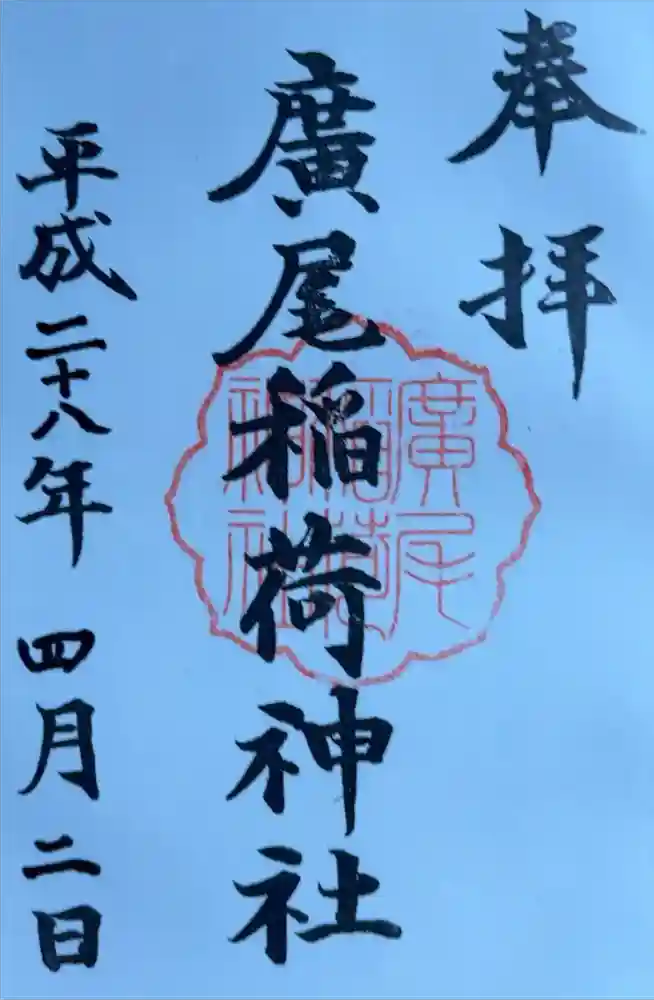 奉拝
廣尾稲荷神社
平成二十八年 四月二日
廣尾
稲荷
神社